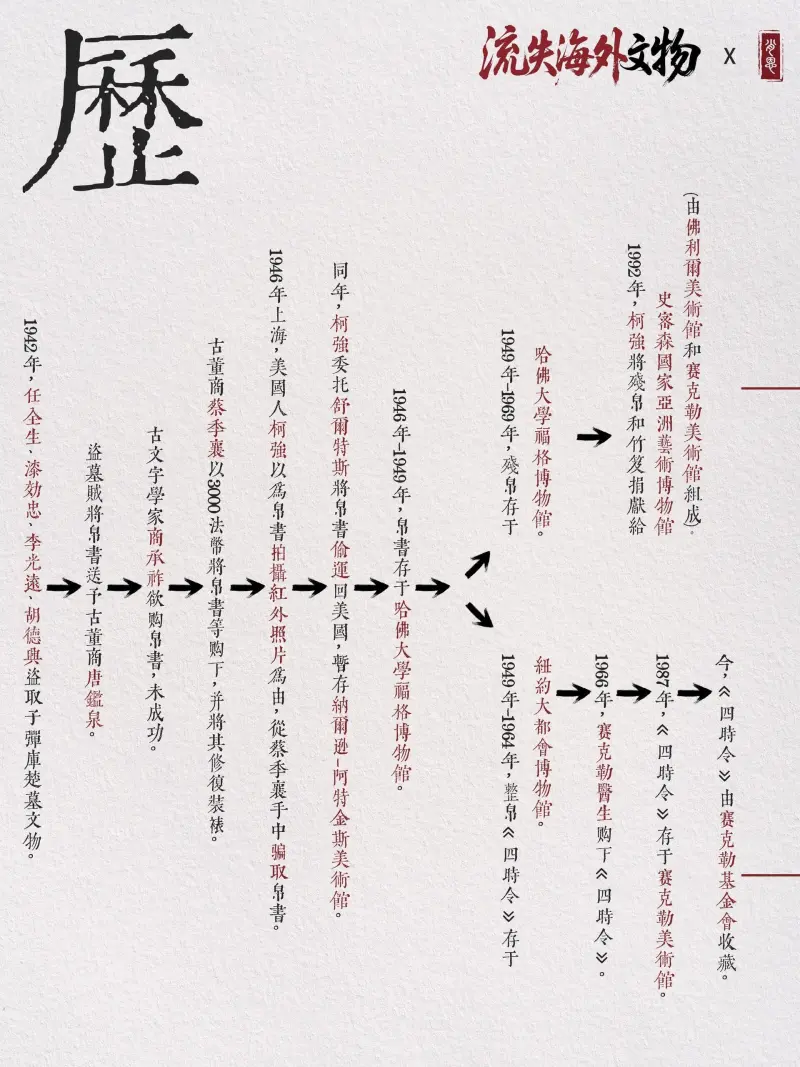 歷
流失海外文物 X
1942年，任全生、漆効忠、李光遠、胡德興盜取于彈庫楚墓文物。
盜墓賊將帛書送予古董商唐鑑泉。
古文字學家商承祚欲购帛書，未成功。
古董商蔡季襄以3000法幣將帛書等购下，并將其修復裝裱。
1946年上海，美國人柯強以爲帛書拍攝紅外照片爲由，從蔡季襄手中騙取帛書。
同年，柯強委托舒爾特斯將帛書偷運回美國，暫存納爾遜-阿特金斯美術館。
1946年-1949年，帛書存于哈佛大學福格博物館。
1949年-1969年，殘帛存于
哈佛大學福格博物館。
1992年，柯強將殘帛和竹笈捐獻給
史密森國家亞洲藝術博物館
(由佛利爾美術館和賽克勒美術館組成)。
1949年-1964年，整帛《四時令》存于
紐約大都會博物館。
1966年，賽克勒醫生购下《四時令》。
1987年，《四時令》存于賽克勒美術館。
今，《四時令》由賽克勒基金會收藏。